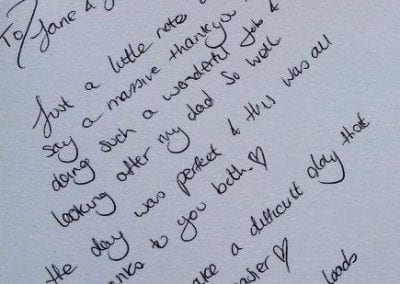 To Jane &
Just a little note
say a massive thankyou
doing such a wonderful job &
looking after my dad so well
the day was perfect & this was all
to you both ♡
a difficult day that
♡
loads